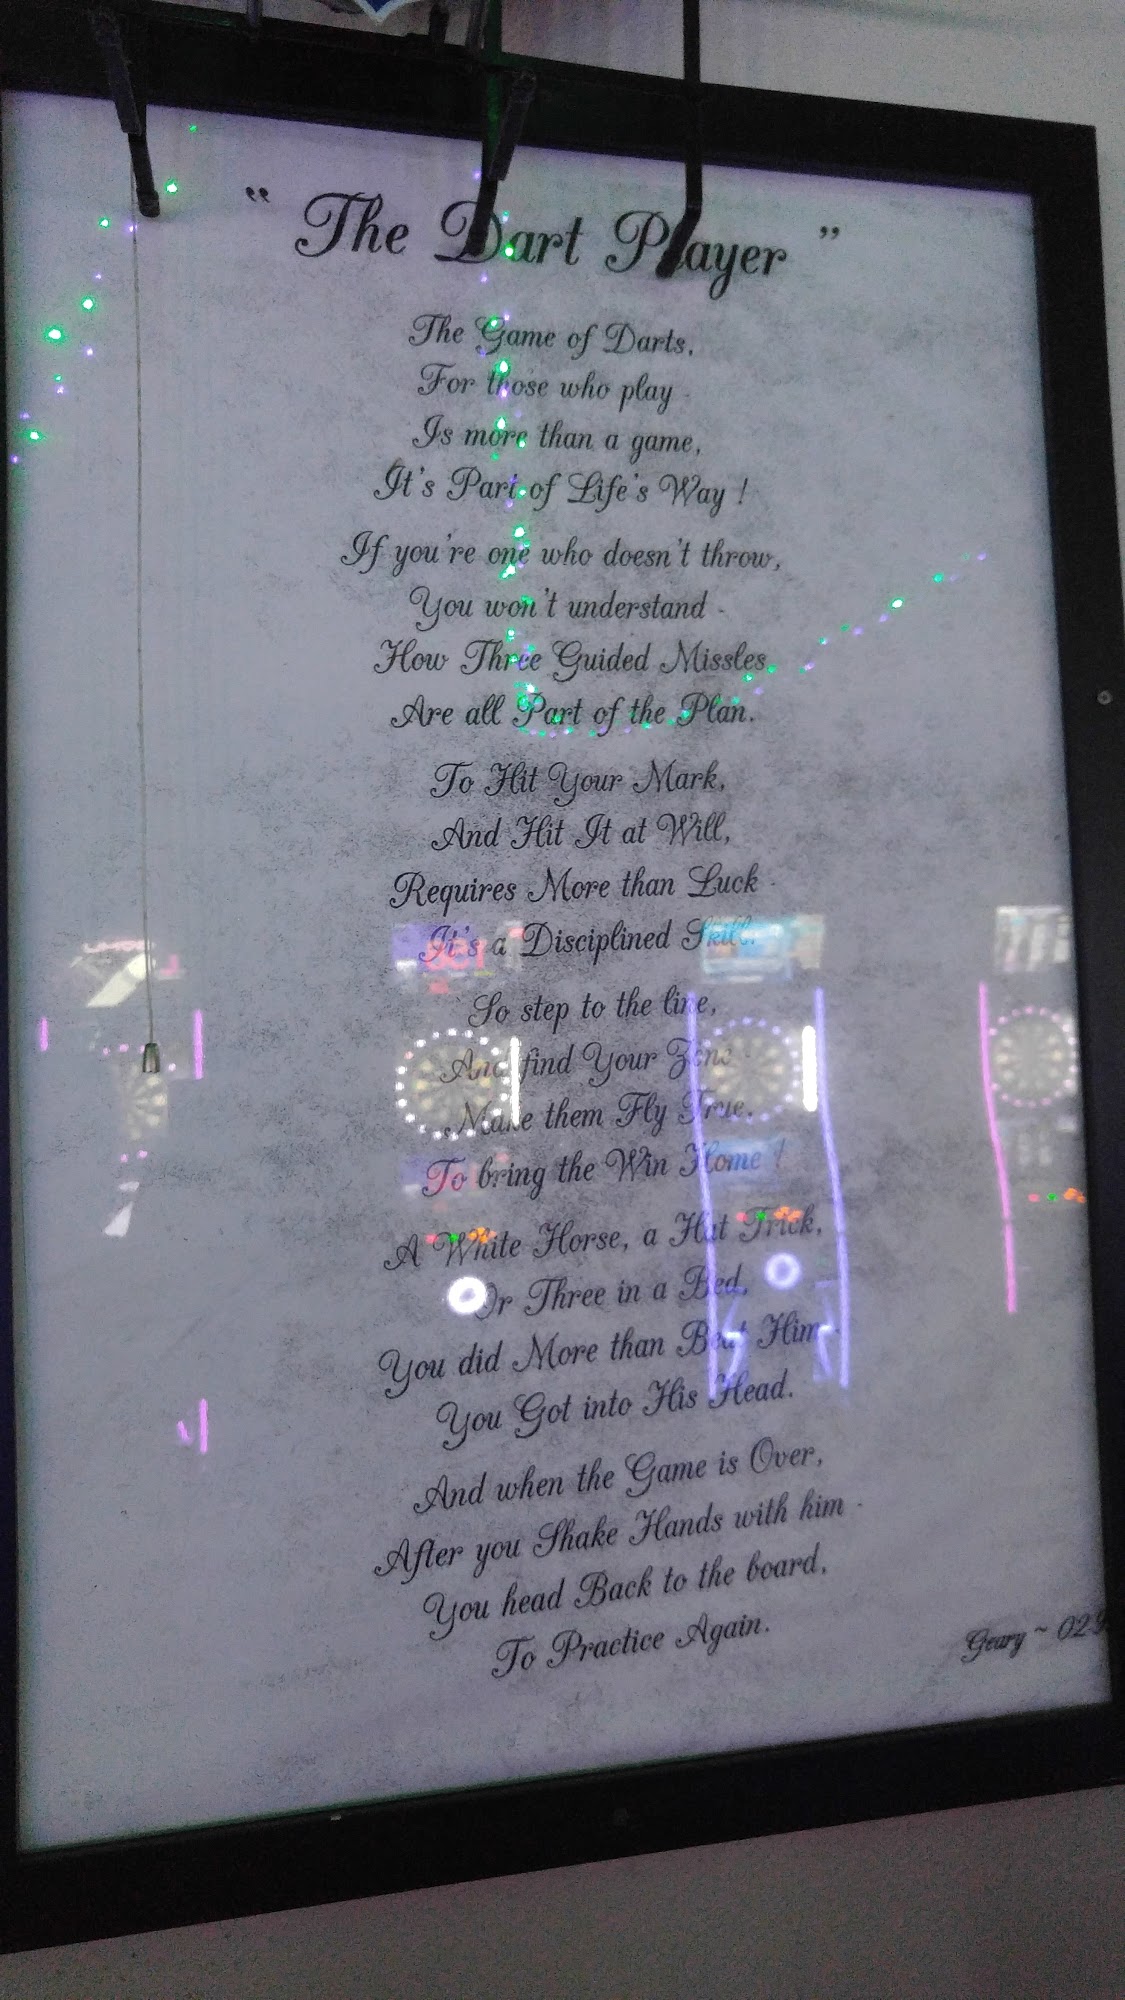 " The Dart Player "
The Game of Darts,
For those who play -
Is more than a game,
It's Part of Life's Way !
If you're one who doesn't throw,
You won't understand -
How Three Guided Missles,
Are all Part of the Plan.
To Hit Your Mark,
And Hit It at Will,
Requires More than Luck -
It's a Disciplined Skill.
So step to the line,
And find Your Zone -
Make them Fly True,
To bring the Win Home !
A White Horse, a Hat Trick,
Or Three in a Bed,
You did More than Beat Him -
You Got into His Head.
And when the Game is Over,
After you Shake Hands with him -
You head Back to the board,
To Practice Again.
Geary ~ 02-